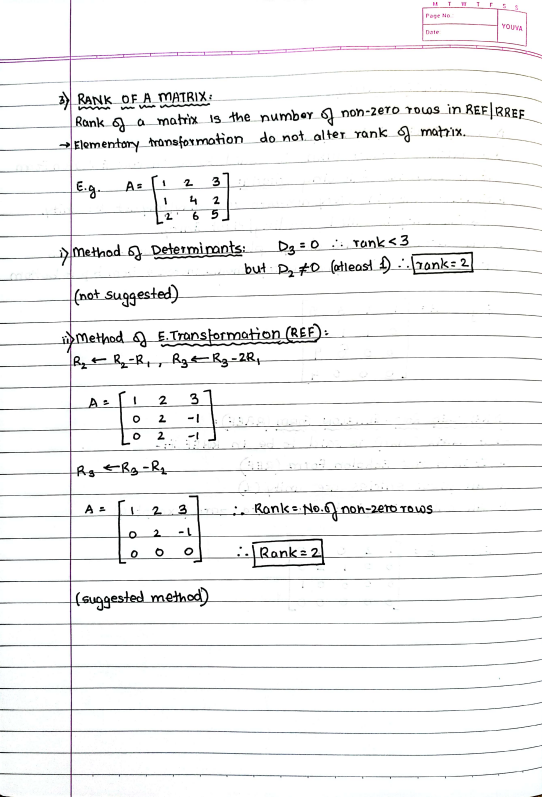 M T W T F S S
Page No:
Date:
YOUVA
3) RANK OF A MATRIX:
Rank of a matrix is the number of non-zero rows in REF|RREF
→ Elementary transformation do not alter rank of matrix.
E.g. A = [1 2 3
1 4 2
2 6 5]
i) Method of Determinants: D₃ = 0 ∴ rank < 3
but D₂ ≠ 0 (atleast 1) ∴ rank = 2
(not suggested)
ii) Method of E.Transformation (REF):
R₂ ← R₂ - R₁ , R₃ ← R₃ - 2R₁
A = [1 2 3
0 2 -1
0 2 -1]
R₃ ← R₃ - R₂
A = [1 2 3 ∴ Rank = No. of non-zero rows
0 2 -1
0 0 0] ∴ Rank = 2
(suggested method)